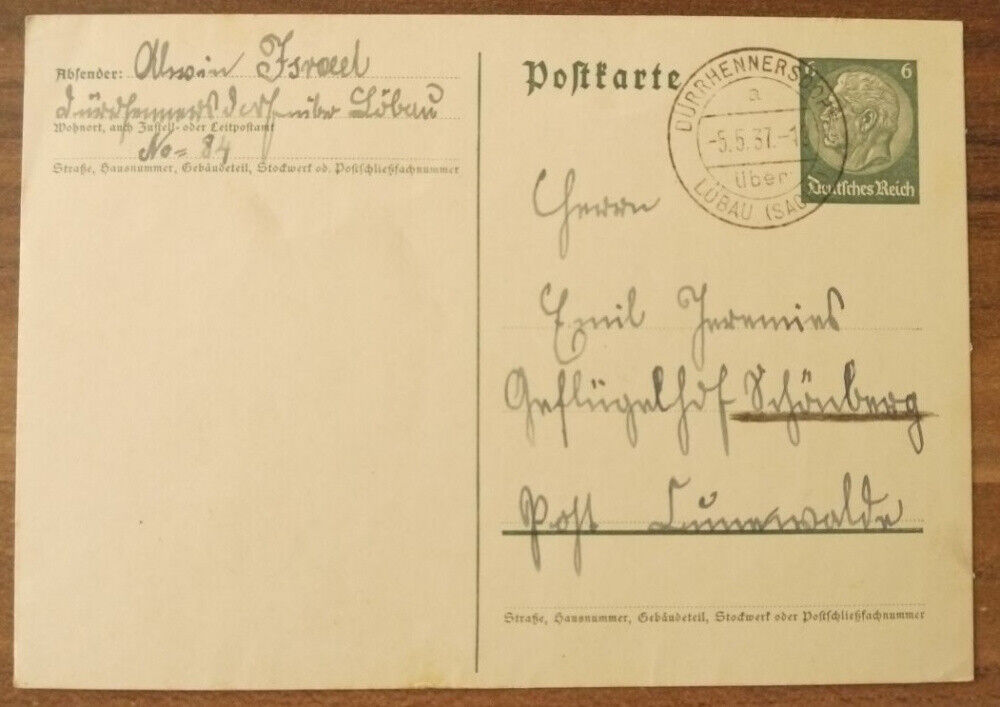 Absender: Alwin Israel
Dürrhennersdorf über Löbau
Wohnort, auch Zustell- oder Leitpostamt
No= 84
Straße, Hausnummer, Gebäudeteil, Stockwerk od. Postschließfachnummer
Postkarte
DÜRRHENNERSDORF
a
-5.5.37.-1
über
LÖBAU (SAC
6 6
Deutsches Reich
Herrn
Emil Jeremies
Geflügelhof Schönberg
Post Cunewalde
Straße, Hausnummer, Gebäudeteil, Stockwerk oder Postschließfachnummer